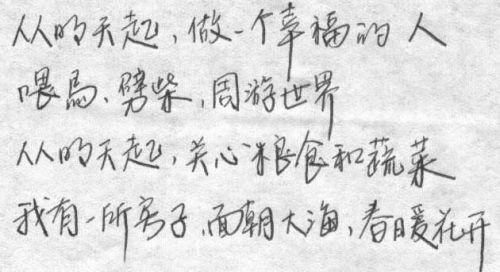 从明天起,做一个幸福的人
喂馬、劈柴,周游世界
从明天起,关心粮食和蔬菜
我有一所房子,面朝大海,春暖花开